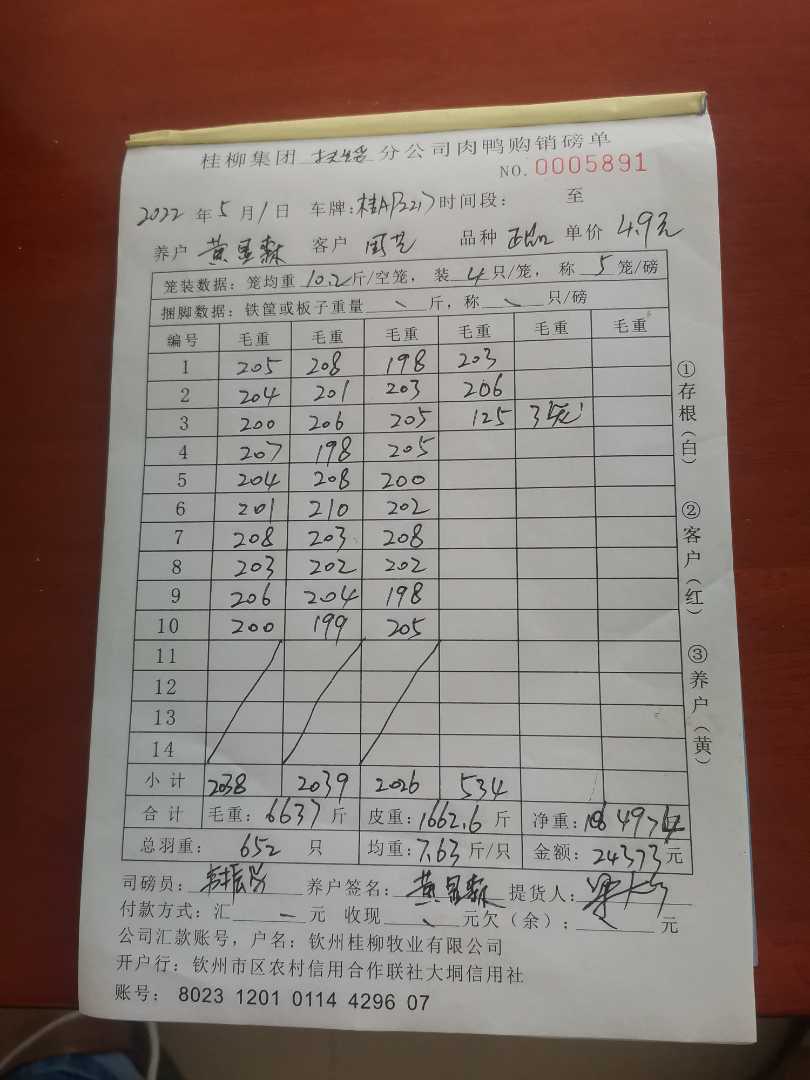 桂柳集团 分公司肉鸭购销磅单
NO. 0005891
2022 年 5 月 1 日 车牌: 时间段: 至
养户 黄星森 客户 品种 正品 单价 4.9元
笼装数据: 笼均重 10.2 斤/空笼, 装 4 只/笼, 称 5 笼/磅
捆脚数据: 铁筐或板子重量 、 斤, 称 、 只/磅
编号 毛重 毛重 毛重 毛重 毛重 毛重
1 205 208 198 203
2 204 201 203 206
3 200 206 205 125 3笼
4 207 198 205
5 204 208 200
6 201 210 202
7 208 203 208
8 203 202 202
9 206 204 198
10 200 199 205
11
12
13
14
小计 2038 2039 2026 534
合计 毛重: 6637 斤 皮重: 1662.6 斤 净重: 斤
总羽重: 652 只 均重: 7.63 斤/只 金额: 24373 元
司磅员: 养户签名: 黄星森 提货人:
付款方式: 汇 一 元 收现 、 元欠(余): 、 元
公司汇款账号, 户名: 钦州桂柳牧业有限公司
开户行: 钦州市区农村信用合作联社大垌信用社
账号: 8023 1201 0114 4296 07
①存根(白)
②客户(红)
③养户(黄)